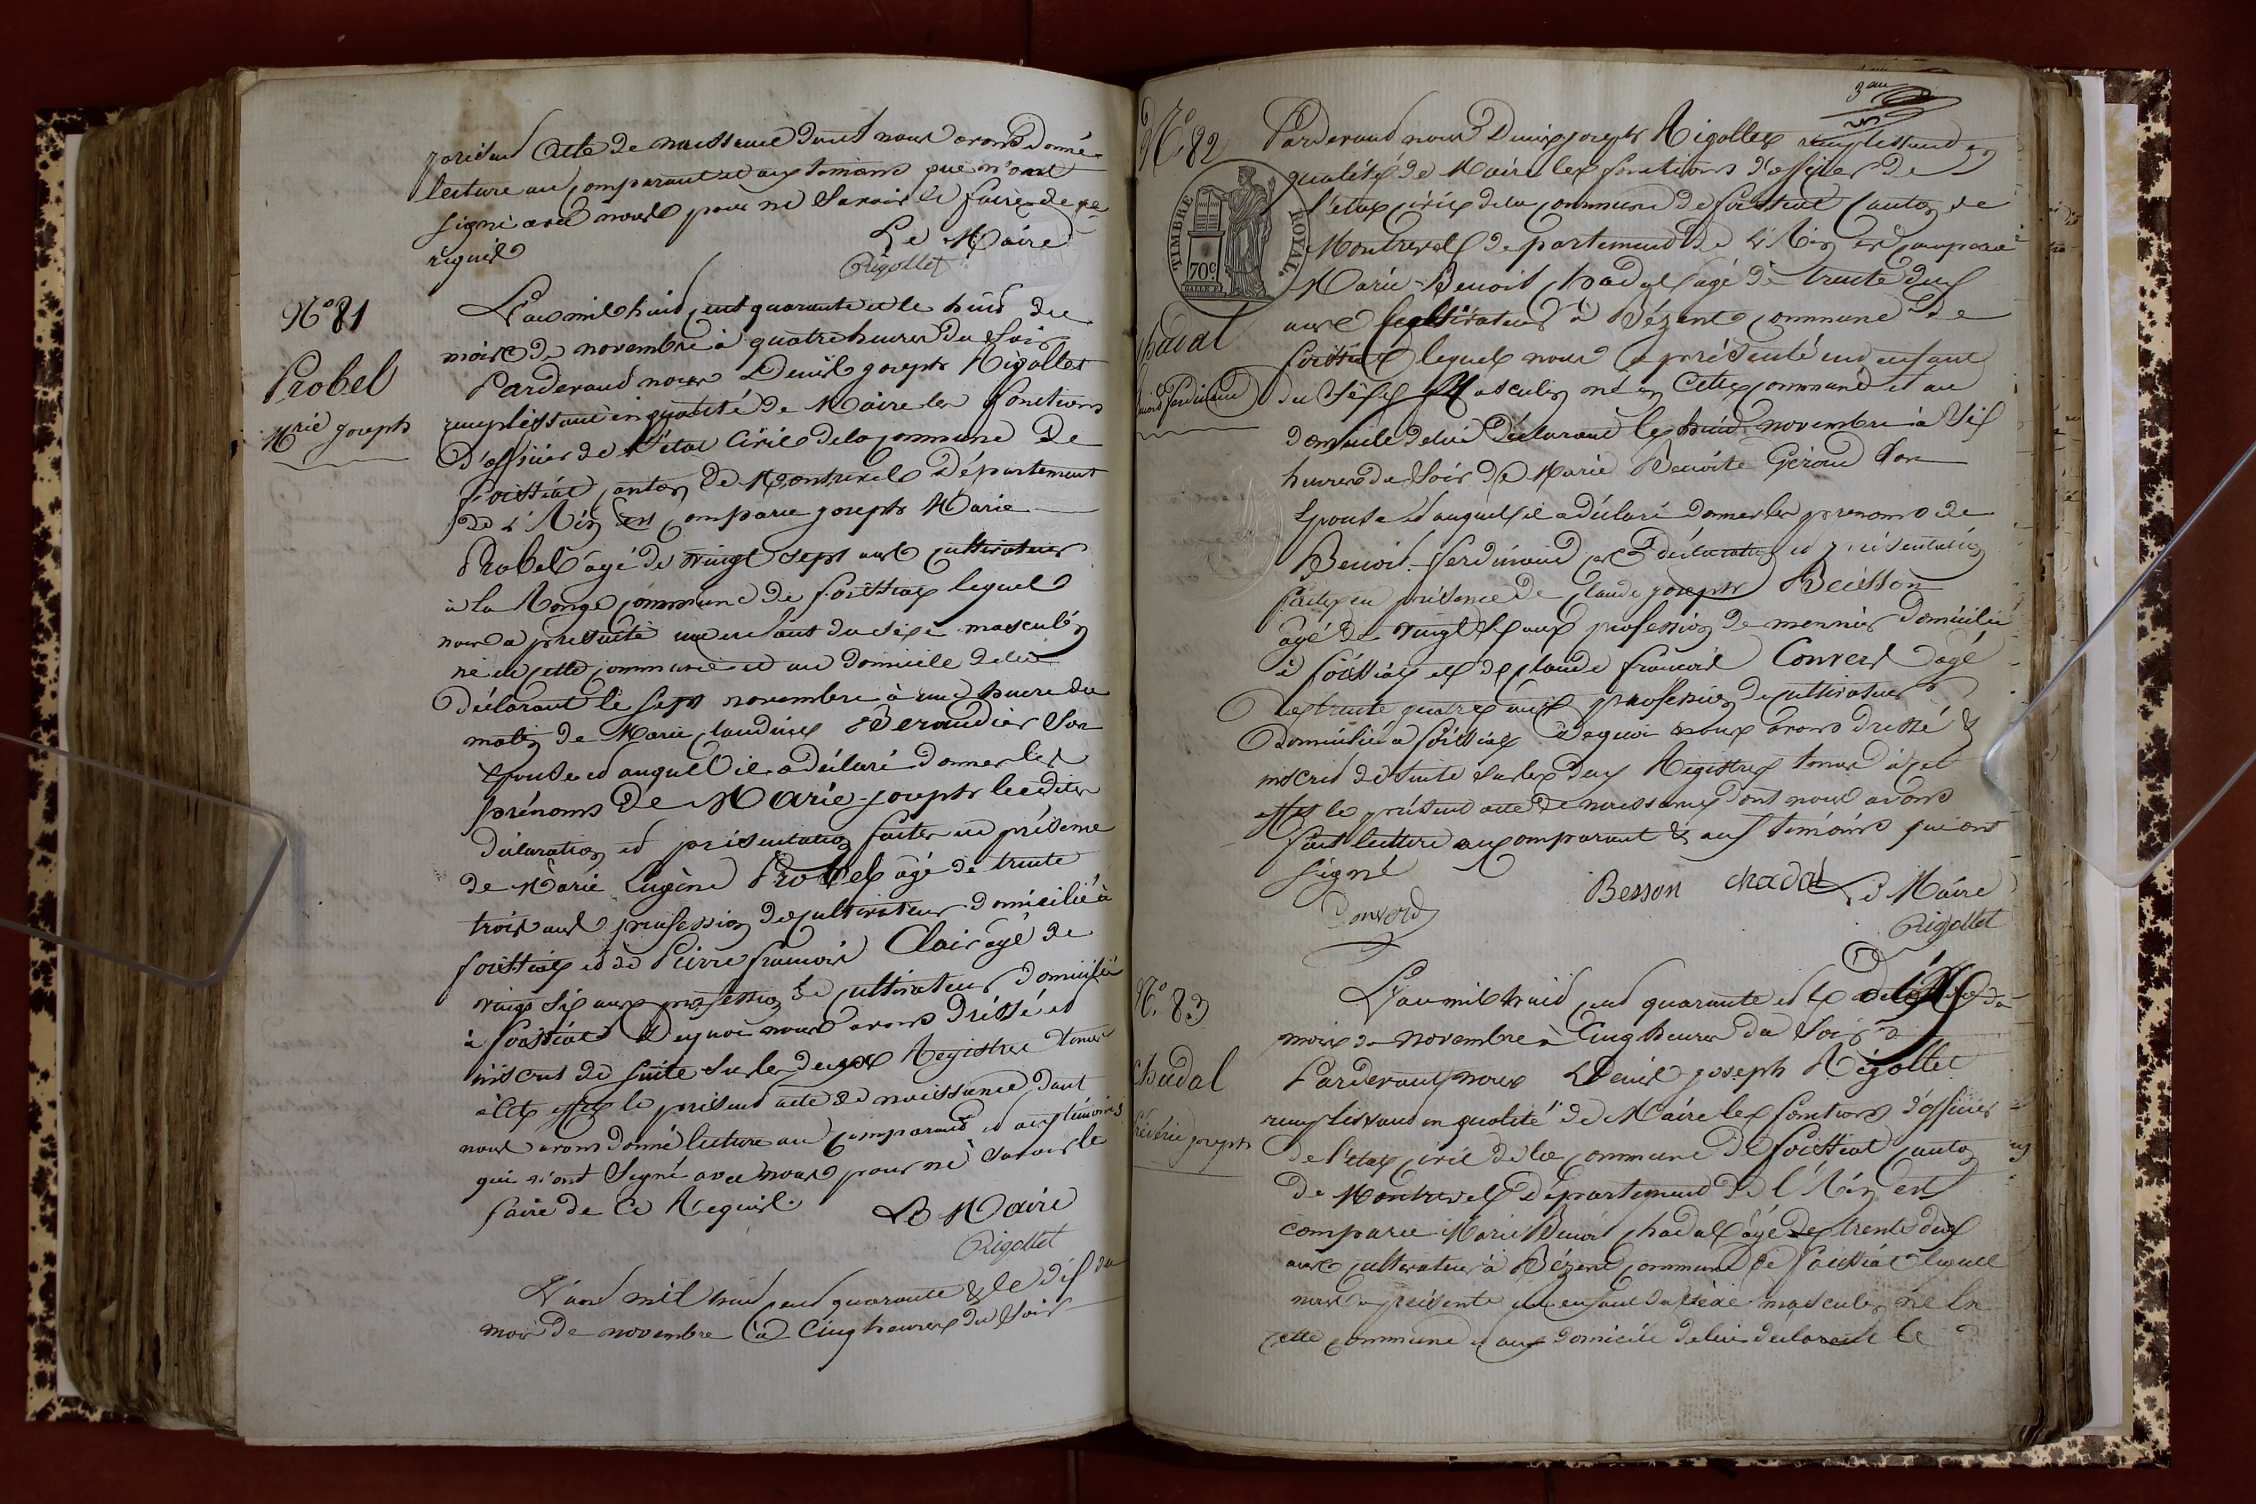 présent acte de naissance dont nous avons donné
lecture au comparant et aux témoins qui n'ont
signé avec nous pour ne savoir le faire de ce
réquis
Le Maire
Rigollet
N° 81
Probel
Mrie joseph
L'an mil huit cent quarante et le huit du
mois de novembre à quatre heures du soir
Pardevant nous Denis joseph Rigollet
remplissant en qualité de Maire les fonctions
d'officier de l'état civil de la commune de
foissiat canton de Montrevel Département
de l'Ain est comparu joseph Marie
Probel âgé de vingt sept ans cultivateur
à la Ronge commune de foissiat lequel
nous a présenté un enfant du sexe masculin
né en cette commune et au domicile de lui
déclarant le sept novembre à une heure du
matin de Marie claudine Beraudier son
épouse et auquel il a déclaré donner les
prénoms de Marie-joseph lesdites
déclaration et présentation faites en présence
de Marie Eugène Probel âgé de trente
trois ans profession de cultivateur domicilié à
foissiat et de Pierre françois Clair âgé de
vingt six ans profession de cultivateur domicilié
à foissiat Dequoi nous avons dréssé et
inscrit de suite sur les deux Registres tenus
à cet effet le présent acte de naissance dont
nous avons donné lecture au comparant et aux témoins
qui n'ont signé avec nous pour ne savoir le
faire de ce Requis
Le Maire
Rigollet
L'an mil huit cent quarante & le dix du
mois de novembre à cinq heures du soir
3au
N° 82
TIMBRE ROYAL.
70c
chadal
Benoit ferdinand
Pardevant nous Denis joseph Rigollet remplissant en
qualité de Maire les fonctions d'officier de
l'état civil de la commune de foissiat canton de
Montrevel département de l'Ain est comparu
Marie-Benoit chadal âgé de trente deux
ans cultivateur à Bézent commune de
foissiat lequel nous a présenté un enfant
du sèxe Masculin né en cette commune et au
domicile de lui déclarant le huit novembre à six
heures du soir de Marie Benoite Geroud son
épouse et auquel il a déclaré donner les prenoms de
Benoit-ferdinand les déclaration et présentation
faites en présence de claude joseph Beisson
âgé de vingt ans profession de mennier domicilié
à foissiat et de claude françois Convert âgé
de trente quatre ans profession de cultivateur
domicilié à foissiat dequoi nous avons dressé &
inscrit de suite sur les deux Registres tenus à cet
effet le présent acte de naissance dont nous avons
fait lecture au comparant & aux témoins qui ont
signé
Convert
Besson chadal Le Maire
Rigollet
N° 83
chadal
joseph
L'an mil huit cent quarante et le dix du
mois de novembre à cinq heures du soir
Pardevant nous Denis joseph Rigollet
remplissant en qualité de Maire les fonctions d'officier
de l'état civil de la commune de foissiat canton
de Montrevel département de l'Ain est
comparu Marie Benoit chadal âgé de trente deux
ans cultivateur à Bézent commune de foissiat lequel
nous a présenté un enfant du sèxe masculin né en
cette commune et au domicile de lui déclarant le